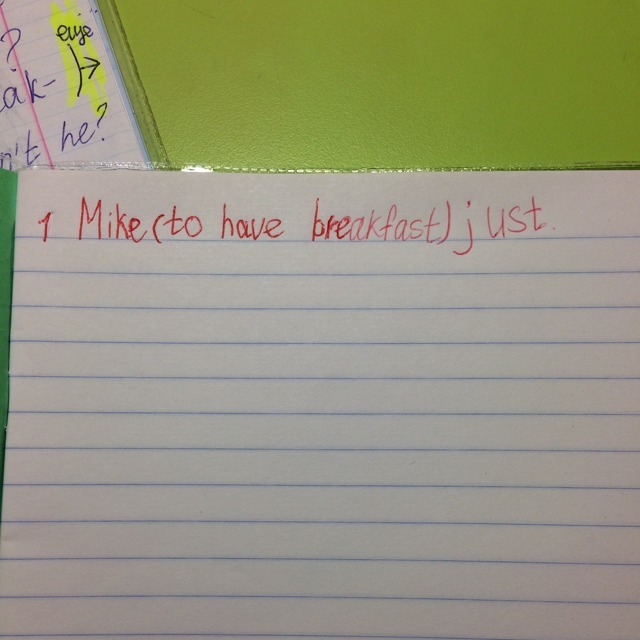 ?
еще
ak-
n't he?
1 Mike (to have breakfast) just.